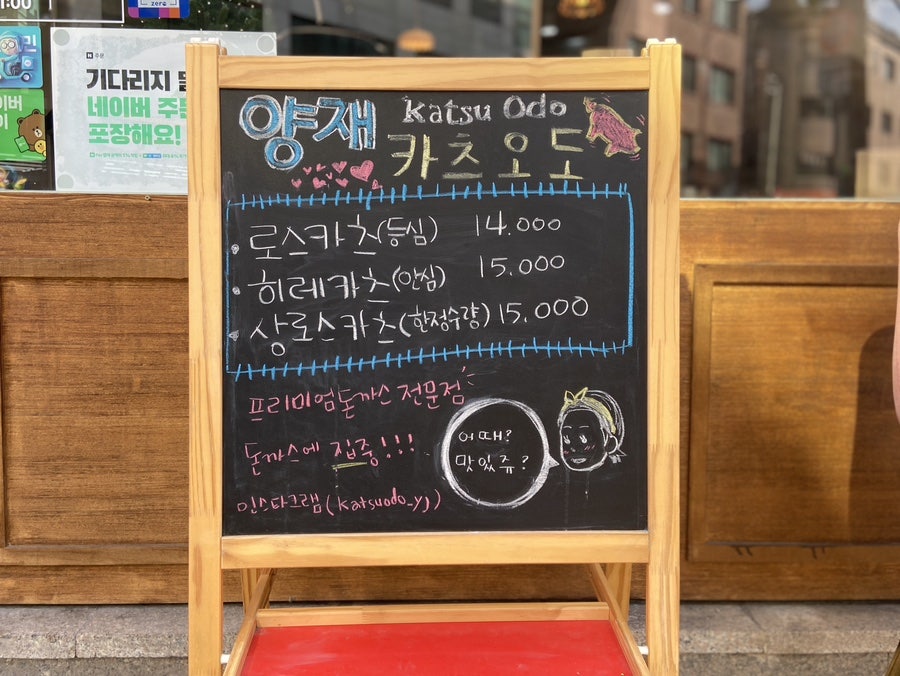 :00
zero
주문
기다리지 말
네이버 주문
포장해요!
양재 Katsu Odo
카츠오도
로스카츠(등심) 14.000
히레카츠(안심) 15.000
상로스카츠(한정수량) 15.000
프리미엄돈까스 전문점
돈까스에 집중!!!
인스타그램(katsuodo_yj)
어때?
맛있쥬?